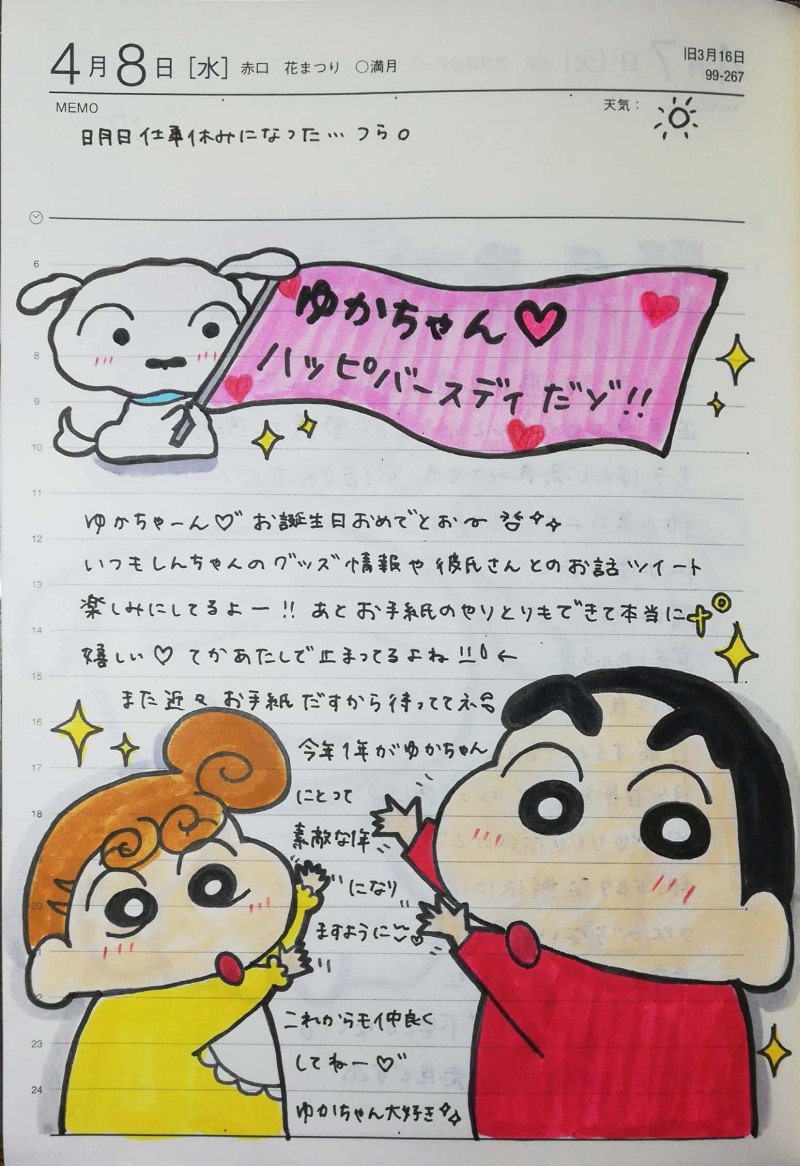 4月8日[水] 赤口 花まつり ○満月
旧3月16日
99-267
MEMO
天気：
明日仕事休みになった…つら。
6
ゆかちゃん♡
8
ハッピバースディだゾ!!
9
10
11
ゆかちゃーん♡ お誕生日おめでとお〜
12
いつもしんちゃんのグッズ情報や彼氏さんとのお話ツイート
13
楽しみにしてるよー!! あとお手紙のやりとりもできて本当に
14
嬉しい♡ てかあたしで止まってるよね!!! ←
15
また近々お手紙だすから待っててネ
16
今年1年がゆかちゃん
17
にとって
18
素敵な1年
になり
20
ますように
これからモイ仲良く
23
してねー♡
24
ゆかちゃん大好き